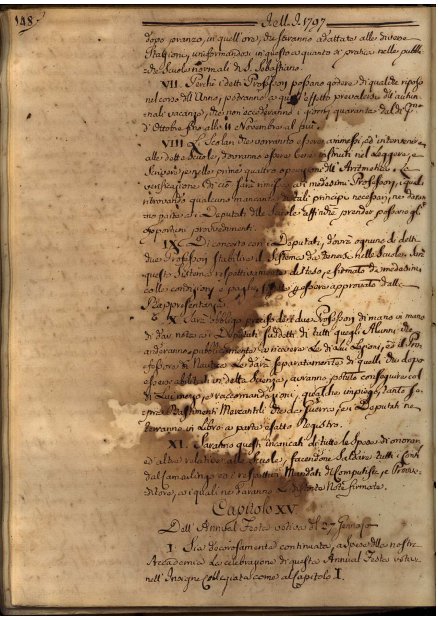 148.
Nell' A. 1797
dopo pranzo, in quell' ore, che saranno adattate alle diverse
Stagioni, uniformandosi in questo a quanto si pratica nelle pubbli=
che Scuole normali di S. Sebastiano.
VII. Perchè i detti Professori possano godere di qualche riposo
nel corso dell' Anno, potranno a quest' effetto prevalersi dell' autun=
nale vacanza, che non eccederanno i giorni quaranta dal dì
d' Ottobre fino alli 11 Novembre al più.
VIII. Scolari che vorranno essere ammessi, ed intervenire
alle dette Scuole, dovranno essere bene istruiti nel Leggere, e
Scrivere, e nelle prime quattro operazioni dell' Aritmetica, la
verificazione di ciò sarà rimessa ai medesimi Professori, i quali
ritrovando qualcuno mancante tali principj necessarj, ne daran=
no parte ai Deputati delle Scuole affinchè prender possano gl'
opportuni provvedimenti.
IX. Di concerto con i Deputati, dovrà ognuno di detti
due Professori stabilire il Sistema da tenersi nelle Scuole. Sarà
questo Sistema rispettivamente disteso, e firmato da medesimi
colle condizioni e essere approvato dalla
Rappresentanza.
X. Sarà obbligo preciso dei due Professori di mano in mano
di dar nota ai Deputati suddetti di tutti quegli Alunni che
anderanno pubblicamente a ricevere le di lui Lezioni, ed il Pro=
fessore di Nautica le darà separatamente di quelli che dopo
essersi abilitati in detta Scienza, avranno potuto conseguire col
di Lui mezzo, e raccomandazioni, qualche impiego, tanto so=
pra Bastimenti Mercantili che da Guerra, ed i Deputati ne
terranno in Libro a parte esatto Registro.
XI. Saranno questi incaricati di tutte le Spese di onorarj
ed altre relative alle Scuole, facendone Saldare tutti i Conti
dal Camarlingo ed i respettivi Mandati di Computista, e Provve=
ditore, ai quali ne daranno le distinte Note firmate.
Capitolo XV.
Dell' Annual Festa votiva del 27 Gennajo
I. Sia decorosamente continuata, a spese della nostra
Accademia la celebrazione di questa Annual Festa votiva
nell' Insigne Collegiata come al Capitolo I.